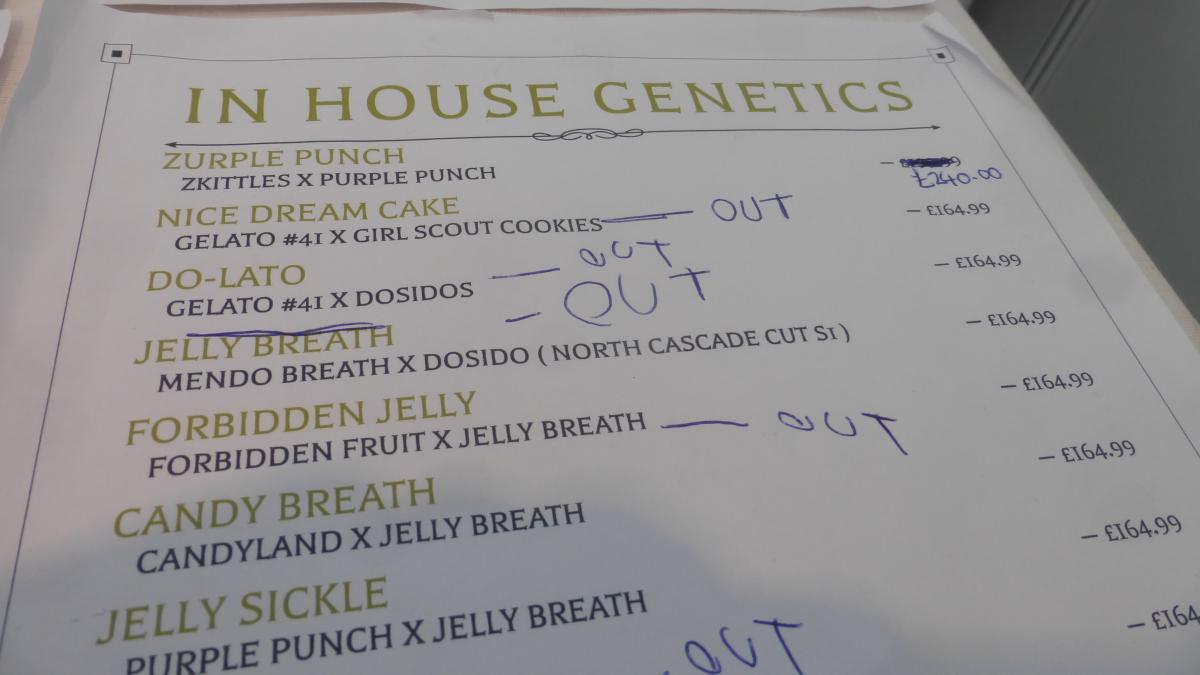 IN HOUSE GENETICS
ZURPLE PUNCH
ZKITTLES X PURPLE PUNCH
—
£240.00
NICE DREAM CAKE
GELATO #41 X GIRL SCOUT COOKIES — OUT
— £164.99
DO-LATO
GELATO #41 X DOSIDOS — OUT
— £164.99
— OUT
JELLY BREATH
MENDO BREATH X DOSIDO ( NORTH CASCADE CUT S1 )
— £164.99
FORBIDDEN JELLY
FORBIDDEN FRUIT X JELLY BREATH — OUT
— £164.99
CANDY BREATH
CANDYLAND X JELLY BREATH
— £164.99
JELLY SICKLE
PURPLE PUNCH X JELLY BREATH
— £164.99
OUT
— £164